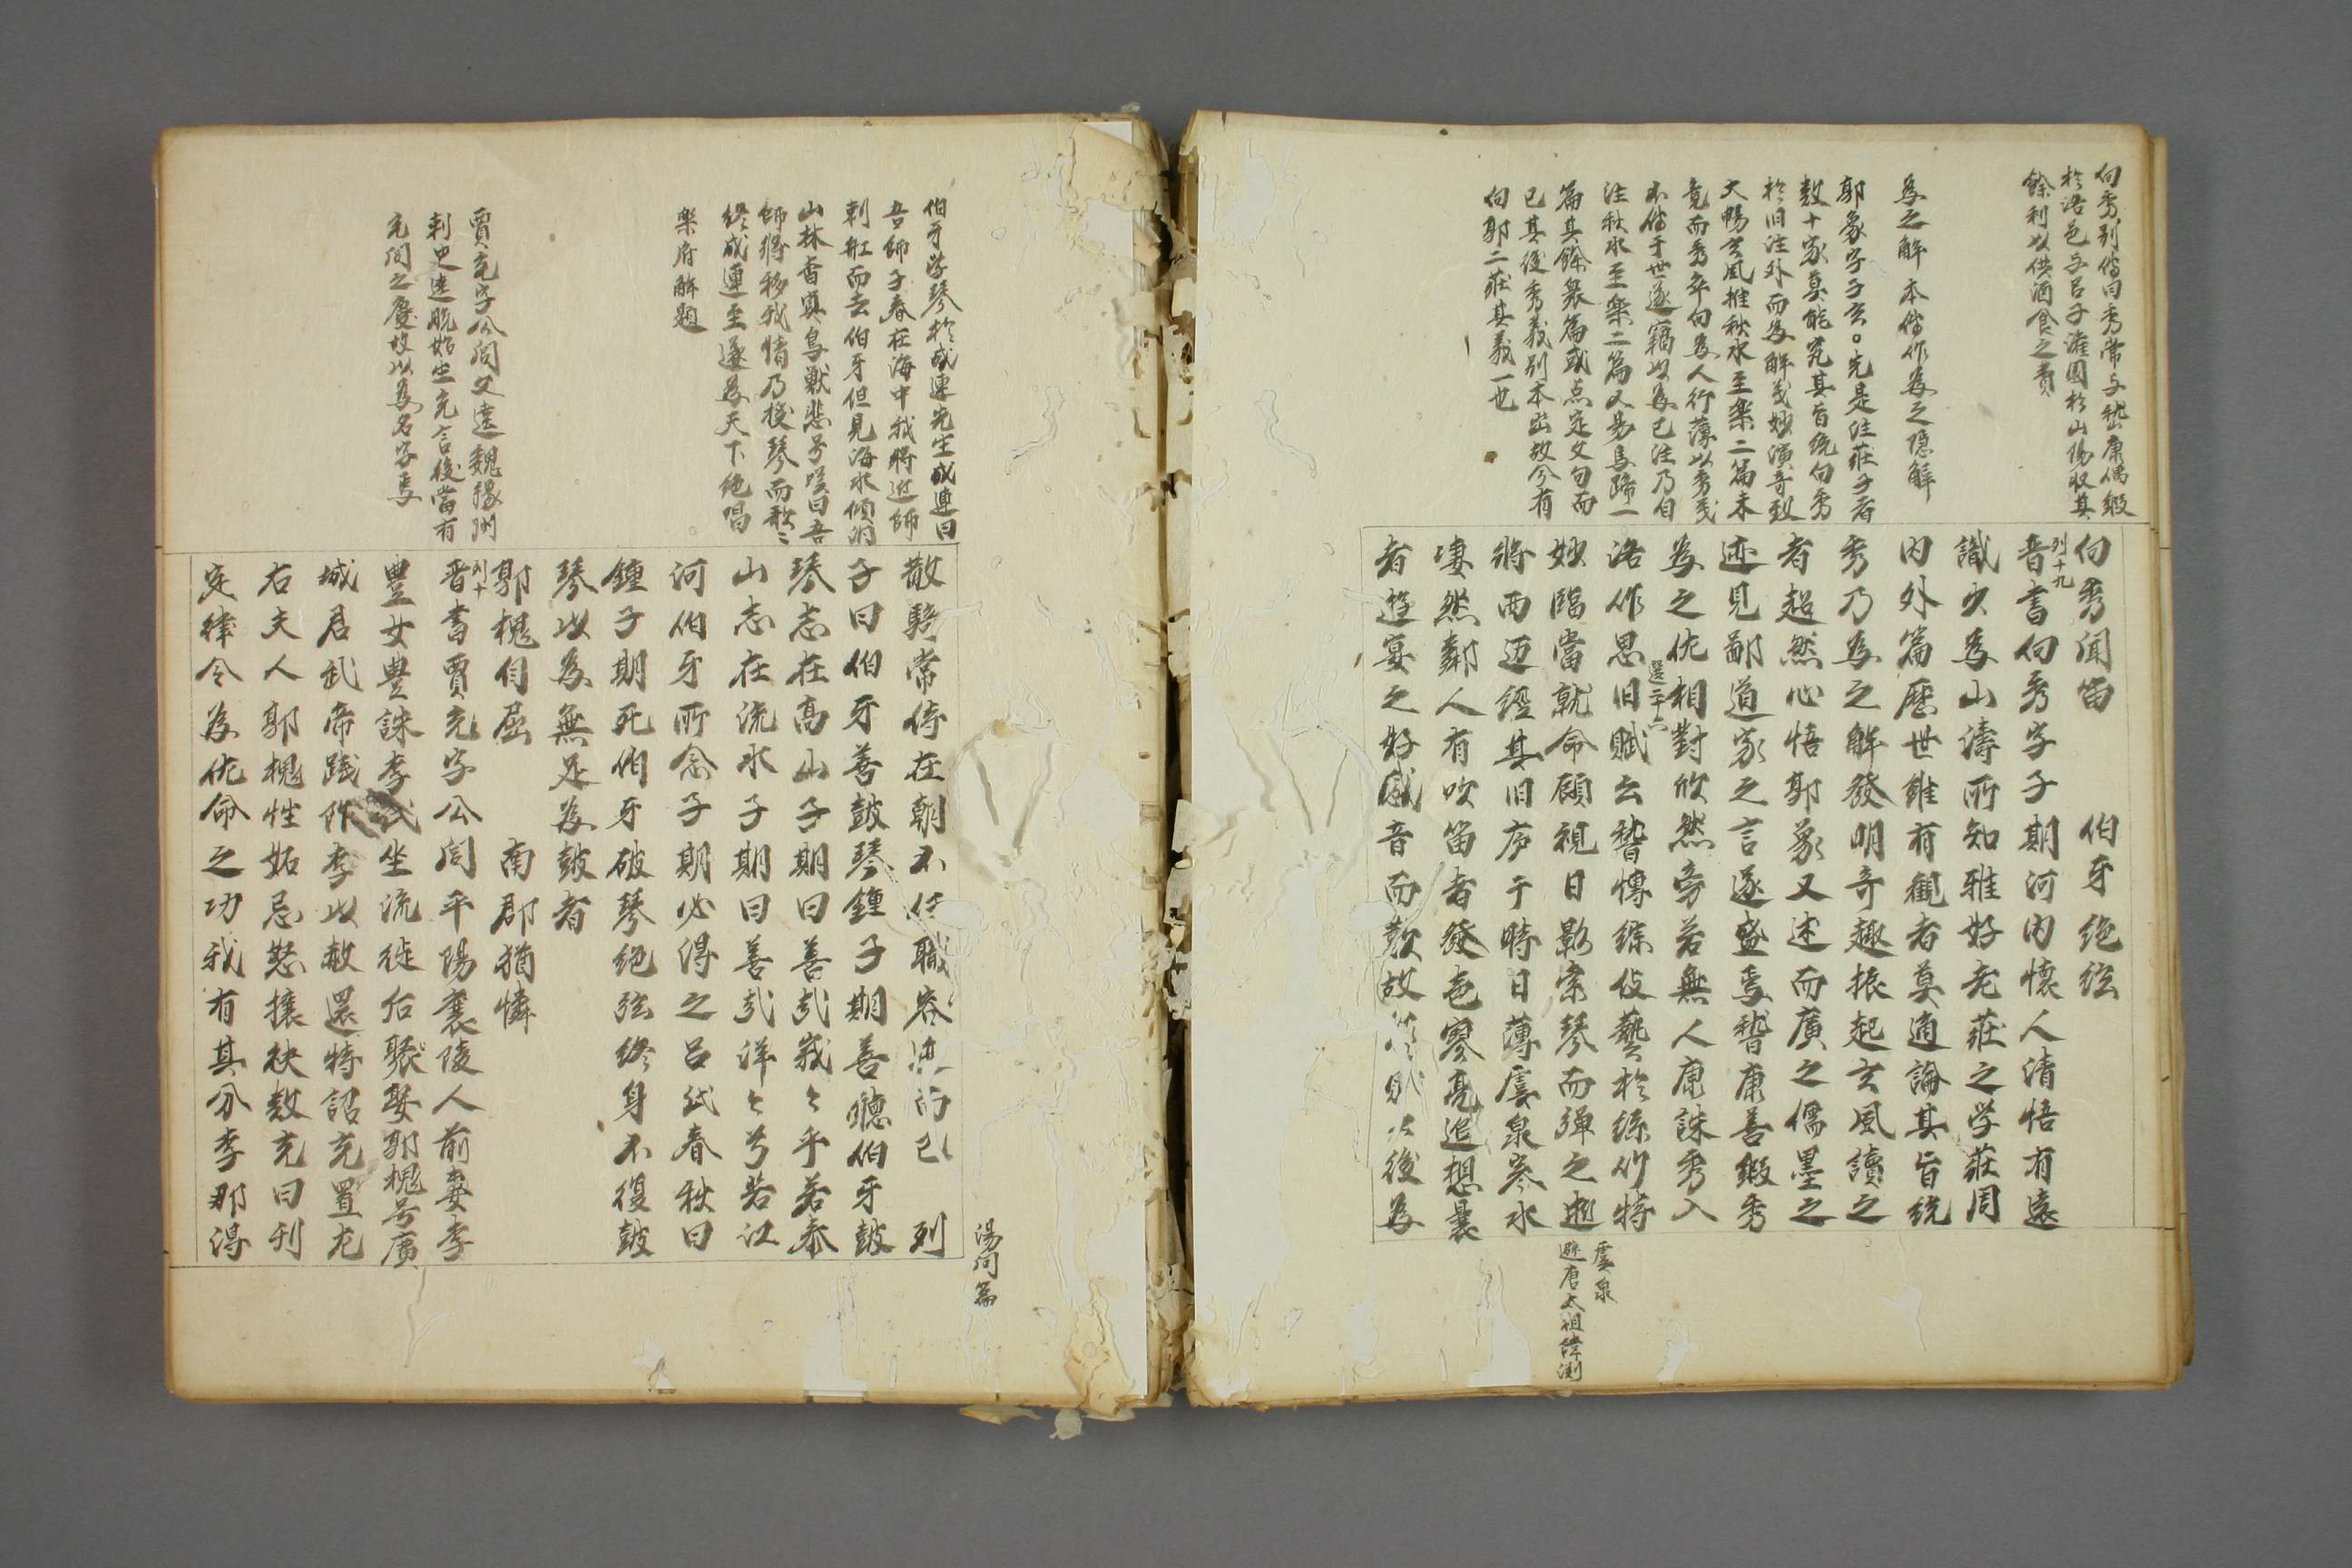 向秀別傳曰秀常与嵆康偶鍛
於洛邑与呂子灌園於山陽收其
餘利以供酒食之費
為之解 本傳作為之隠解
郭象字子玄。先是注莊子者
数十家莫能究其旨統向秀
於旧注外而為解義妙演奇致
大暢玄風惟秋水至楽二篇未
竟而秀卒向為人行薄以秀義
不傳于世遂竊以為己注乃自
注秋水至楽二篇又易馬蹄一
篇其餘衆篇或点定文句而
已其後秀義別本出故今有
向郭二莊其義一也
向秀聞笛 伯牙絶絃
列十九
晋書向秀字子期河内懷人清悟有遠
識少為山濤所知雅好老莊之学莊周
内外篇歴世雖有観者莫適論其旨統
秀乃為之解發明奇趣振起玄風讀之
者超然心悟郭象又述而廣之儒墨之
迹見鄙道家之言遂盛焉嵆康善鍛秀
為之佐相對欣然旁若無人康誅秀入
選十六
洛作思旧賦云嵆慱綜伎藝於絲竹特
妙臨當就命顧視日影索琴而彈之逝
将西迈經其旧庐于時日薄虞泉寒冰
凄然鄰人有吹笛者發声寥亮追想曩
者遊宴之好感音而歎故 後為
虞泉
避唐太祖諱淵
伯牙学琴於成連先生成連曰
吾師子春在海中我将迎師
刺舡而去伯牙但見海水傾洞
山林杳冥鳥獣悲号嘆曰吾
師将移我情乃援琴而歌之
終成連至遂為天下絶唱
楽府解題
賈充字公閭父逵魏豫州
刺史逵晩始生充言後當有
充閭之慶故以為名字焉
散騎常侍在朝不任職容迹而已 列
湯問篇
子曰伯牙善鼓琴鍾子期善聽伯牙鼓
琴志在高山子期曰善哉峩々乎若泰
山志在流水子期曰善哉洋々兮若江
河伯牙所念子期必得之呂氏春秋曰
鍾子期死伯牙破琴絶絃終身不復鼓
琴以為無足為鼓者
郭槐自屈 南郡猶憐
列十
晋書賈充字公閭平陽襄陵人前妻李
豊女豊誅李氏坐流徙后娶郭槐号廣
城君武帝踐祚李以赦還特詔充置左
右夫人郭槐性妬忌怒攘袂数充曰刊
定律令為佐命之功我有其分李那得